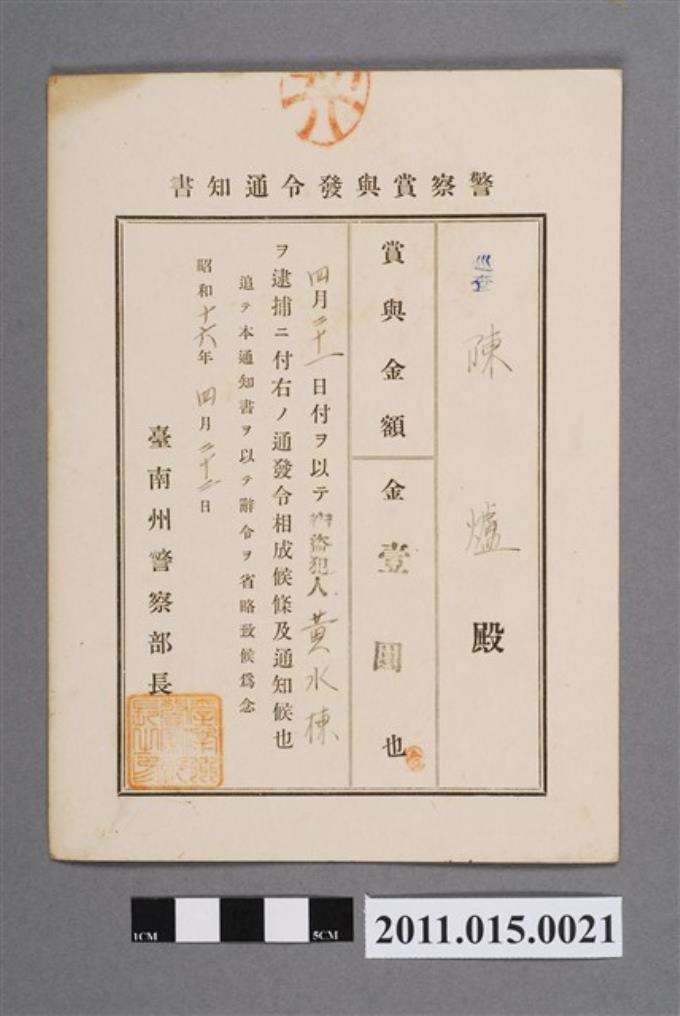 警察賞與發令通知書
巡查 陳 爐 殿
賞與金額
金壹圓也
四月二十一日付ヲ以テ竊盜犯人黃水棟
ヲ逮捕ニ付右ノ通發令相成候條及通知候也
追テ本通知書ヲ以テ辭令ヲ省略致候爲念
昭和十六年四月二十二日
臺南州警察部長
1CM
5CM
2011.015.0021